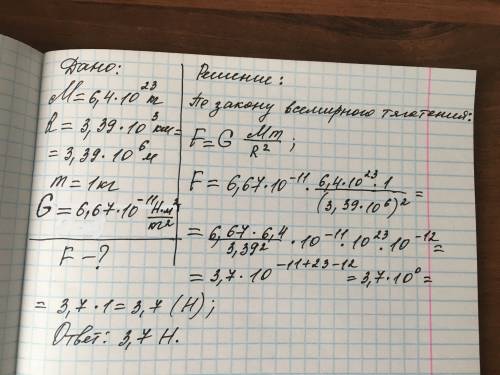 Дано:
M = 6,4·10²³ т
R = 3,39·10³ км =
= 3,39·10⁶ м
m = 1 кг
G = 6,67·10⁻¹¹ Н·м²/т²
F – ?
Решение:
По закону всемирного тяготения:
F = G Mm/R² ;
F = 6,67·10⁻¹¹ · 6,4·10²³·1/(3,39·10⁶)² =
= 6,67·6,4/3,39² · 10⁻¹¹ · 10²³ · 10⁻¹² =
= 3,7·10⁻¹¹⁺²³⁻¹² = 3,7·10⁰ =
= 3,7·1 = 3,7 (Н);
Ответ: 3,7 Н.